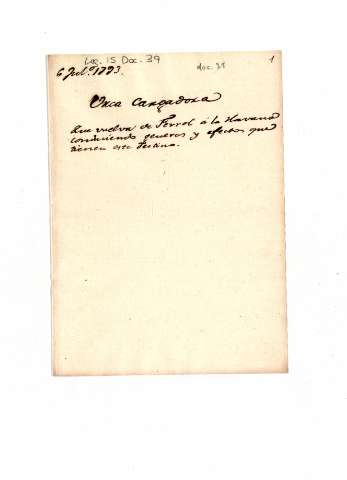 Leg. 15 Doc. 39
doc. 39
1
6 Jul.º 1793.
Urca Cargadora
Que vuelva de Ferrol á la Havana
conduciendo generos y efectos que
tienen este destino.